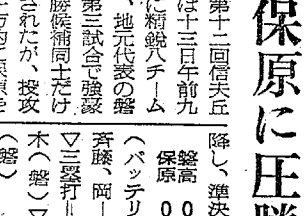 保原に圧勝
第十二回信夫丘
は十三日午前九
に精鋭八チーム
、地元代表の磐
第三試合で強豪
勝候補同士だけ
されたが、投攻
降し、準決
磐高０
保原０
（バッテリ
斉藤、岡―
▽三塁打＝
木（磐）▽
（磐）